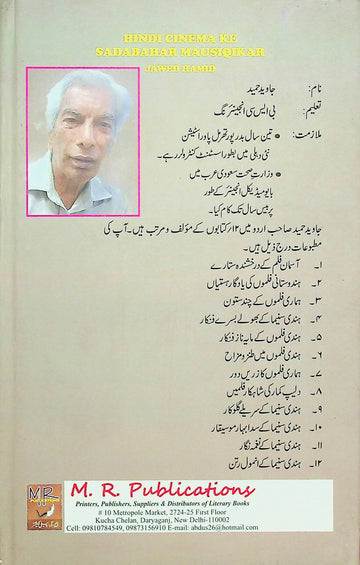 HINDI CINEMA KE
SADABAHAR MAUSIQIKAR
JAWED HAMID
نام: جاوید حمید
تعلیم: بی ایس سی انجینئرنگ
ملازمت: • تین سال بدر پور تھرمل پاور اسٹیشن
نئی دہلی میں بطور اسسٹنٹ کنٹرولر رہے۔
• وزارتِ صحت سعودی عرب میں
بایومیڈیکل انجینئر کے طور
پر بیس سال تک کام کیا۔
جاوید حمید صاحب اردو میں ۱۲؍ کتابوں کے مؤلف و مرتب ہیں۔ آپ کی
مطبوعات درج ذیل ہیں۔
۱۔ آسمانِ فلم کے درخشندہ ستارے
۲۔ ہندوستانی فلموں کی یادگار ہستیاں
۳۔ ہماری فلموں کے چند ستون
۴۔ ہندی سنیما کے بھولے بسرے فنکار
۵۔ ہندی فلموں کے مایہ ناز فنکار
۶۔ ہندی فلموں میں طنز و مزاح
۷۔ ہماری فلموں کا زریں دور
۸۔ دلیپ کمار کی شاہکار فلمیں
۹۔ ہندی سنیما کے سریلے گلوکار
۱۰۔ ہندی سنیما کے سدا بہار موسیقار
۱۱۔ ہندی سنیما کے نغمہ نگار
۱۲۔ ہندی سنیما کے انمول رتن
M. R. Publications
Printers, Publishers, Suppliers & Distributors of Literary Books
# 10 Metropole Market, 2724-25 First Floor
Kucha Chelan, Daryaganj, New Delhi-110002
Cell: 09810784549, 09873156910 E-mail: abdus26@hotmail.com
MR